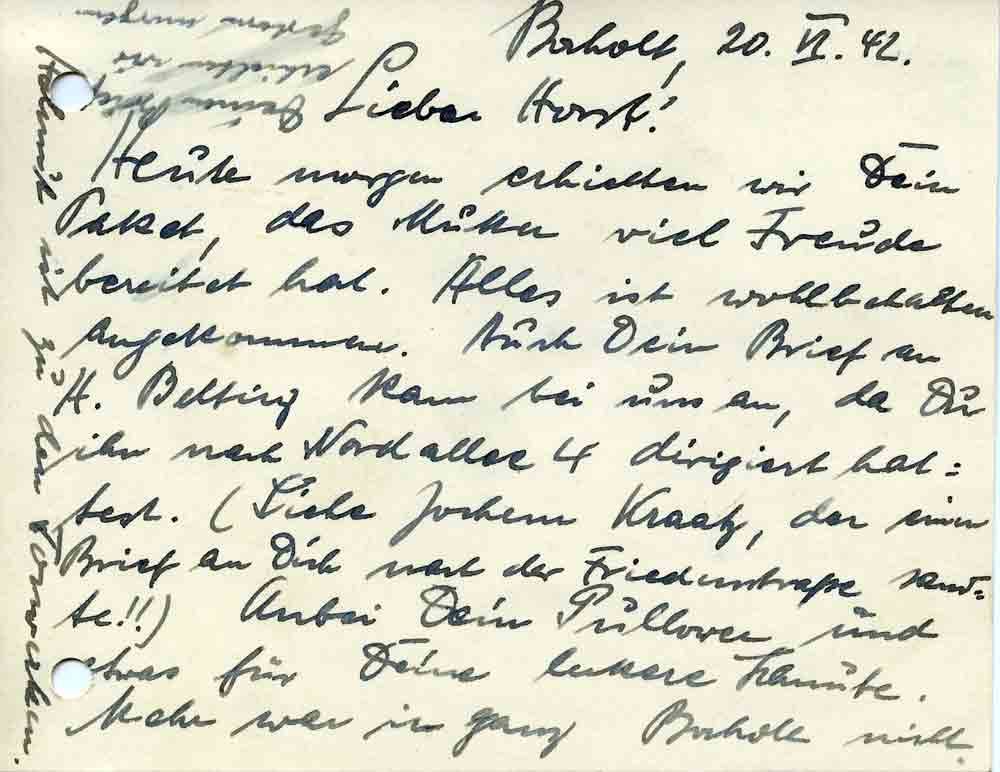 Bocholt, 20. VI. 42.
Lieber Horst!
Heute morgen erhielten wir Dein
Paket, das Mutter viel Freude
bereitet hat. Alles ist wohlbehalten
angekommen. Auch Dein Brief an
H. Belting kam bei uns an, da Du
ihn nach Nordallee 4 dirigiert hat=
test. (Siehe Jochem Kraatz, der einen
Brief an Dich nach der Friedensstraße sand=
te!!) Anbei Dein Pullover und
etwas für Deine leckere Schnute.
Mehr war in ganz Bocholt nicht
Deinen Brief
erhielten wir
gestern morgen
ich zu den Vorwerken.